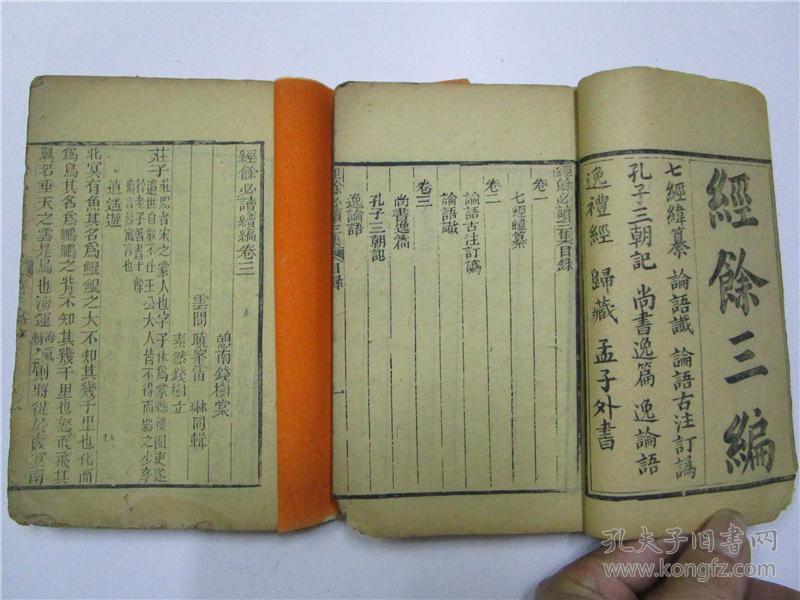 經餘三編
七經緯纂 論語讖 論語古注訂譌
孔子三朝記 尚書逸篇 逸論語
逸禮經 歸藏 孟子外書
經餘必讀三集目録
卷一
七經緯纂
卷二
論語古注訂譌
論語讖
卷三
尚書逸篇
孔子三朝記
逸論語
經餘必讀三集目録
一
經餘必讀續編卷三
憩南錢樹棠
雲間 曉峯雷 琳同輯
素然錢樹立
莊子
逍遥遊
北冥有魚其名爲鯤鯤之大不知其幾千里也化而
爲鳥其名爲鵬鵬之背不知其幾千里也怒而飛其
翼若垂天之雲是鳥也海運則將徙於南冥南
孔夫子旧书网
www.kongfz.com